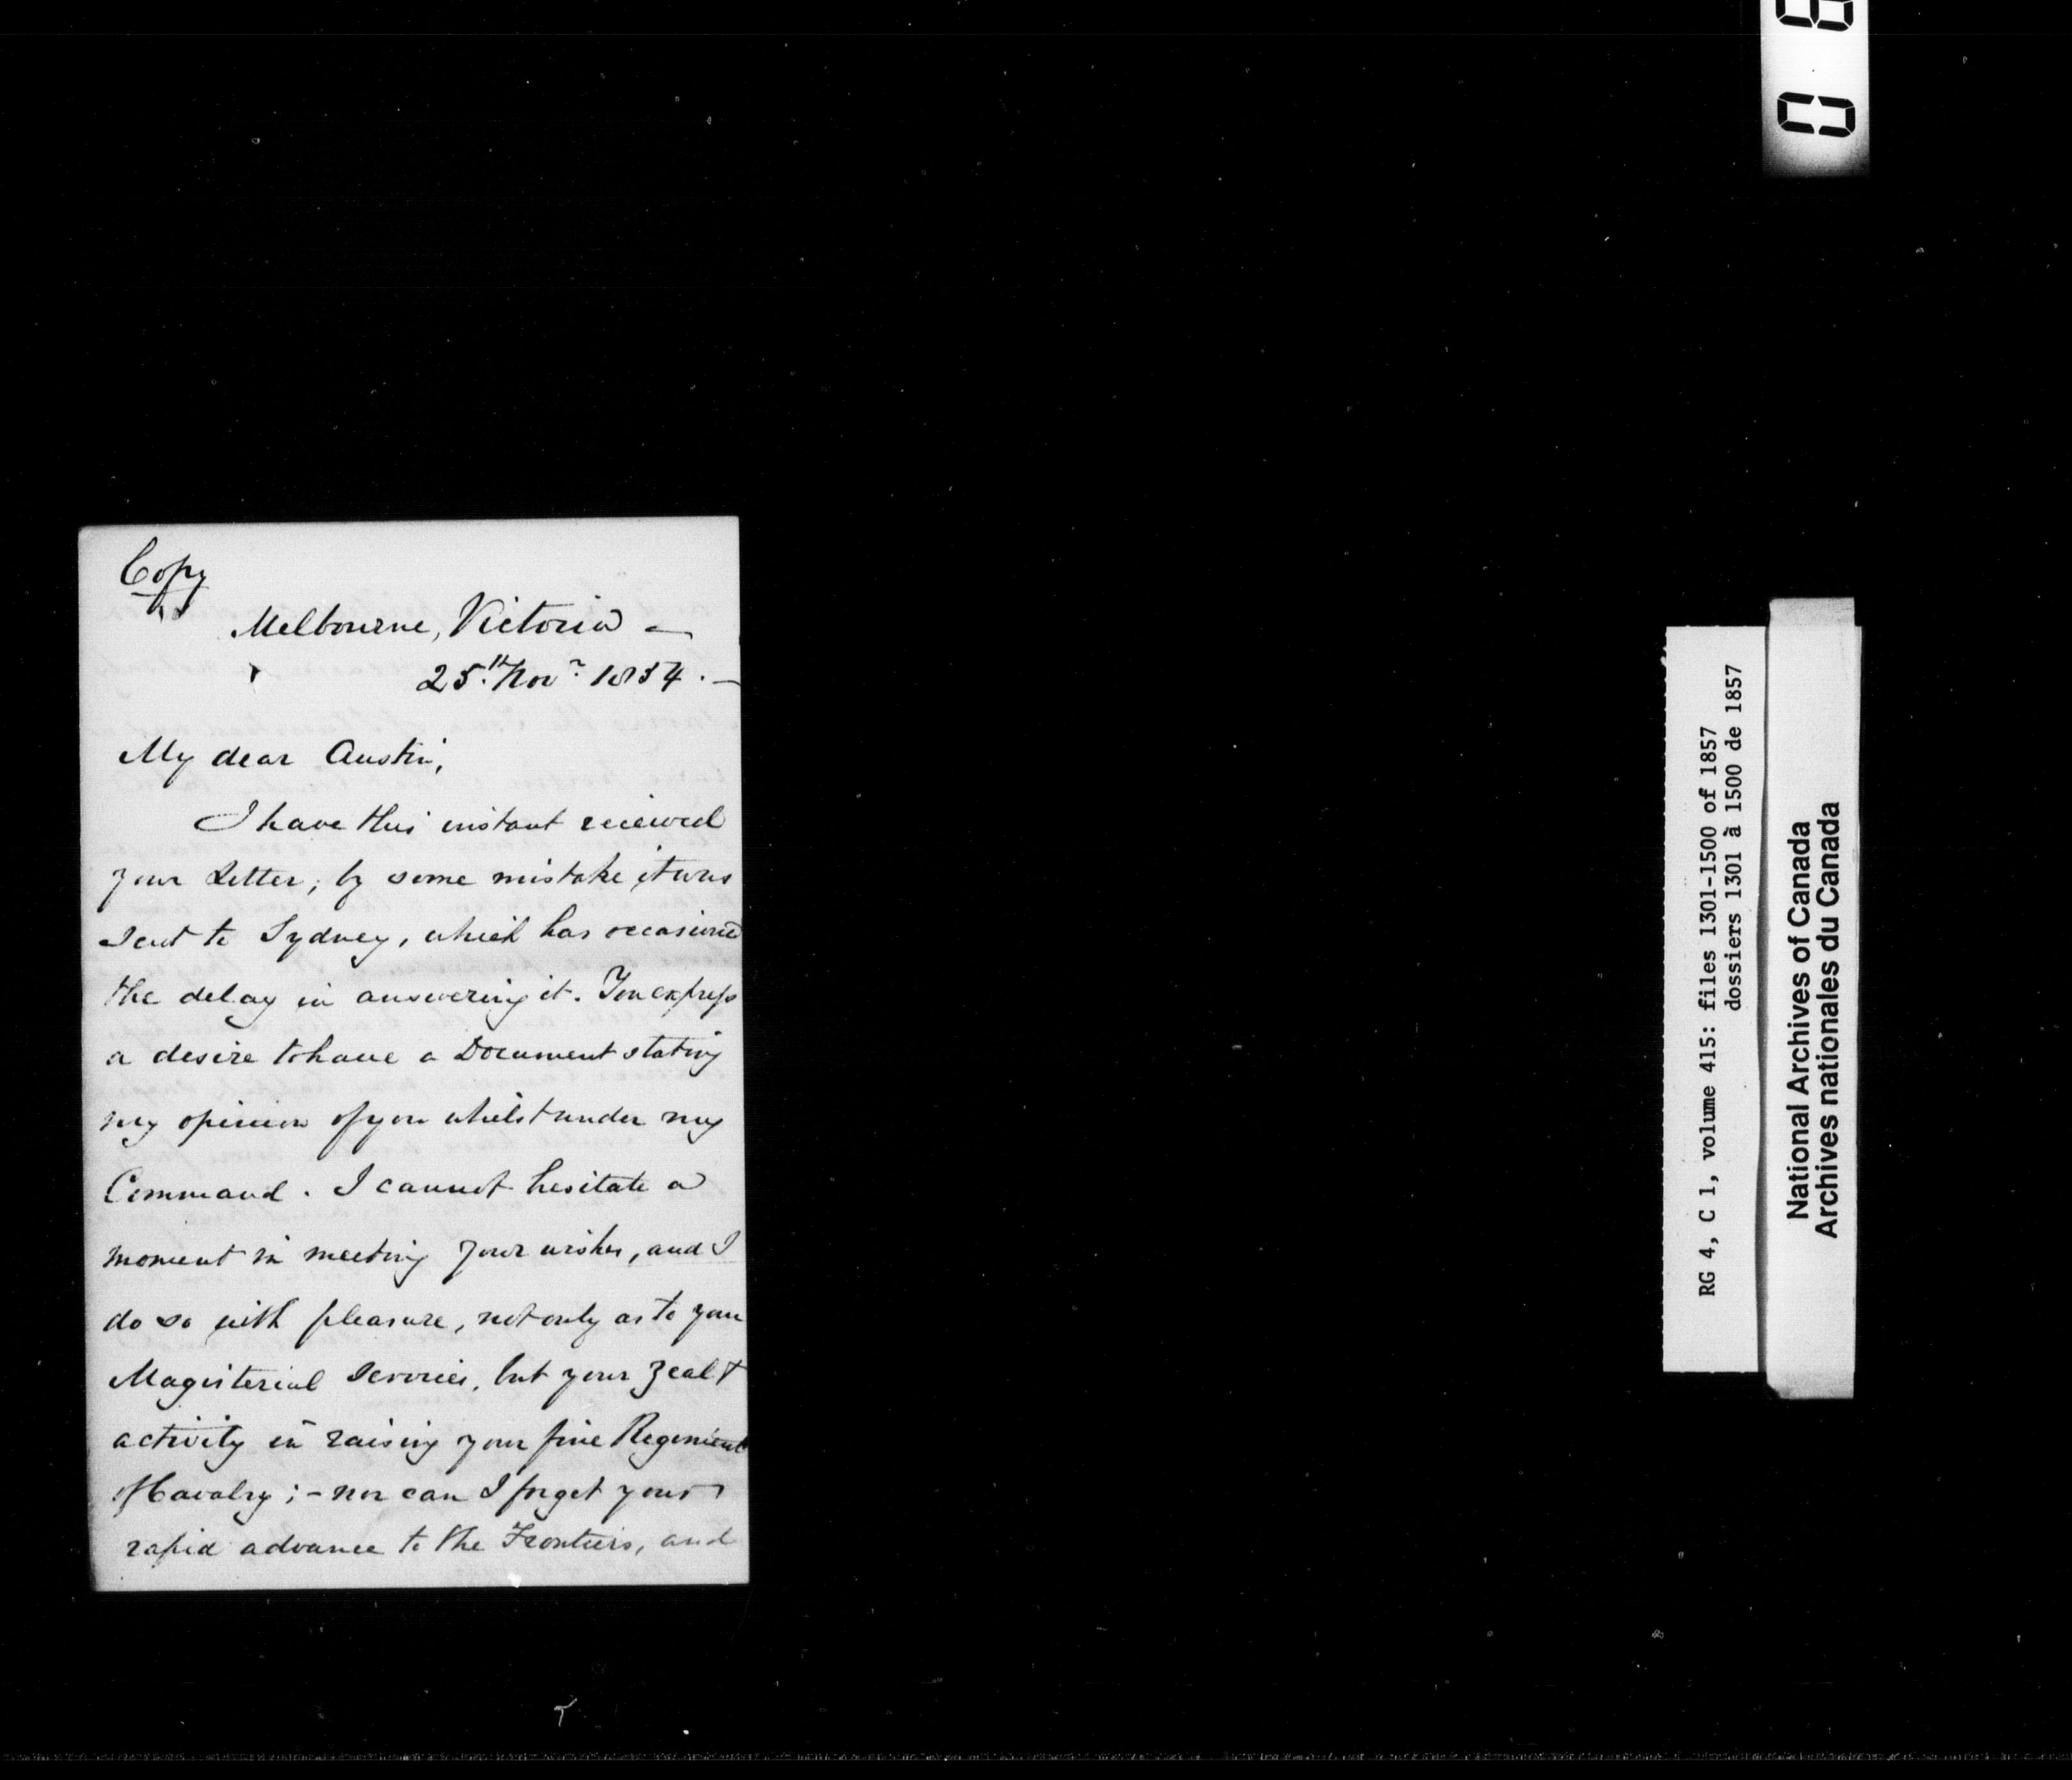 Copy
Melbourne, Victoria —
25th Novr 1854. —
My dear Austin,
I have this instant received
your Letter; by some mistake it was
Sent to Sydney, which has occasioned
the delay in answering it. You express
a desire to have a Document stating
my opinion of you whilst under my
Command. I cannot hesitate a
moment in meeting your wishes, and I
do so with pleasure, not only as to your
Magisterial Services, but your Zeal &
activity in raising your fine Regiment
of Cavalry; – nor can I forget your
rapid advance to the Frontiers, and
RG 4, C 1, volume 415: files 1301-1500 of 1857
dossiers 1301 à 1500 de 1857
National Archives of Canada
Archives nationales du Canada